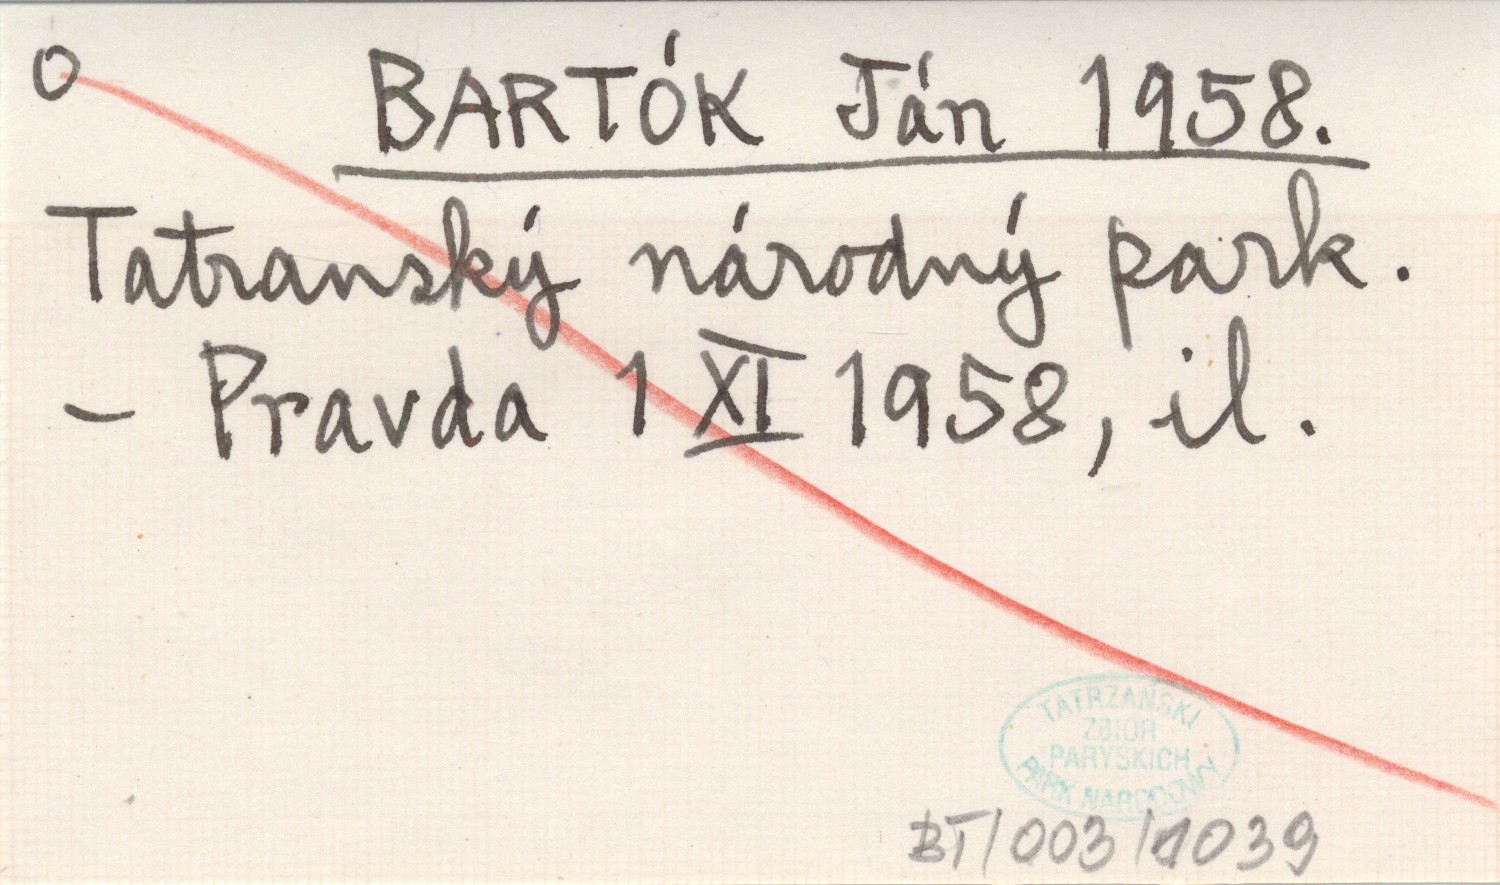 O
BARTÓK Ján 1958.
Tatranský národný park.
– Pravda 1 XI 1958, il.
TATRZAŃSKI
ZBIÓR
PARYSKICH
PARK NARODOWY
BT/003/1039